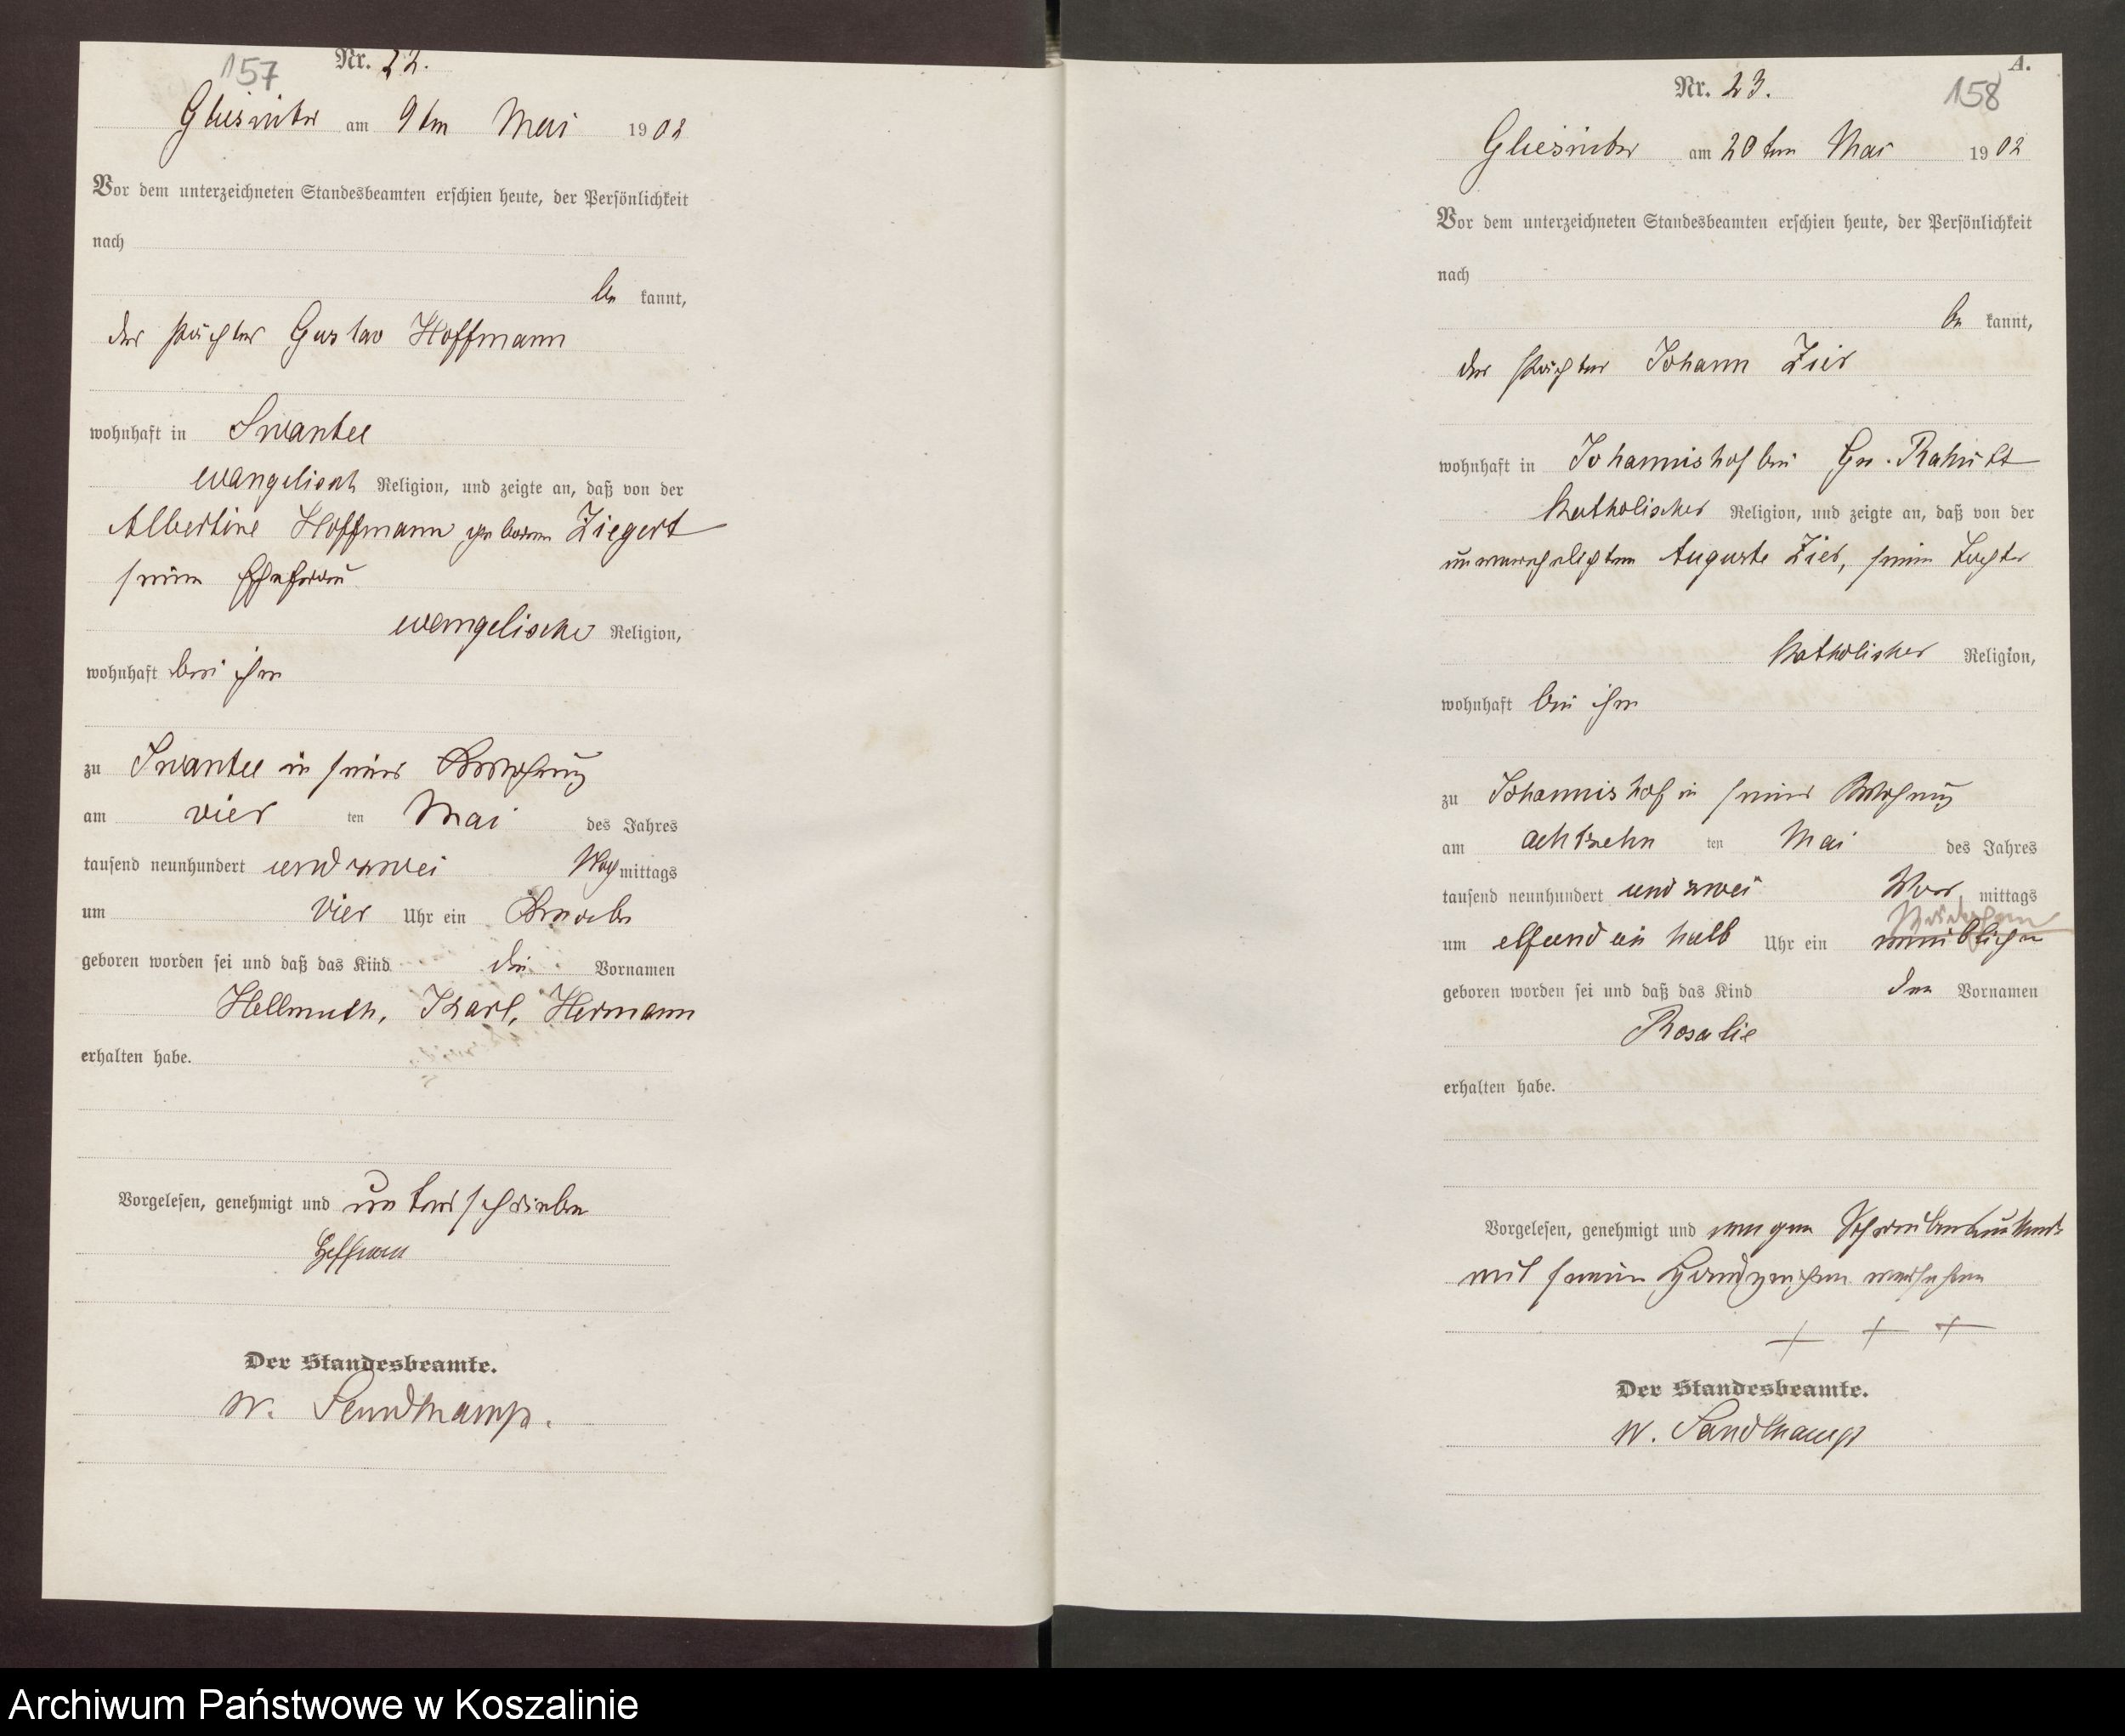 157
Nr. 22.
Gliesnitz am 9ten Mai 1902
Vor dem unterzeichneten Standesbeamten erschien heute, der Persönlichkeit
nach
be kannt,
der Pächter Gustav Hoffmann
wohnhaft in Swantee
evangelisch Religion, und zeigte an, daß von der
Albertine Hoffmann geboren Ziegert
seine Ehefrau
evangelische Religion,
wohnhaft bei ihm
zu Swantee in seiner Wohnung
am vier ten Mai des Jahres
tausend neunhundert und zwei Nach mittags
um vier Uhr ein Knabe
geboren worden sei und daß das Kind die Vornamen
Hellmuth, Karl, Hermann
erhalten habe.
Vorgelesen, genehmigt und unterschrieben
Hoffmann
Der Standesbeamte.
W. Sandkamp.
A.
Nr. 23.
158
Gliesnitz am 20ten Mai 1902
Vor dem unterzeichneten Standesbeamten erschien heute, der Persönlichkeit
nach
be kannt,
der Pächter Johann Zier
wohnhaft in Johannishof bei Gr.
Katholischer Religion, und zeigte an, daß von der
unverehelichten Auguste Zier, seine Tochter
Katholischer Religion,
wohnhaft bei ihm
zu Johannishof in seiner Wohnung
am achtzehn ten Mai des Jahres
tausend neunhundert und zwei Vor mittags
Mädchen
um elf und ein halb Uhr ein weiblichen
geboren worden sei und daß das Kind den Vornamen
Rosalie
erhalten habe.
Vorgelesen, genehmigt und wegen Schreibensunkunde
mit seinen Handzeichen versehen
+ + +
Der Standesbeamte.
W. Sandkamp
Archiwum Państwowe w Koszalinie